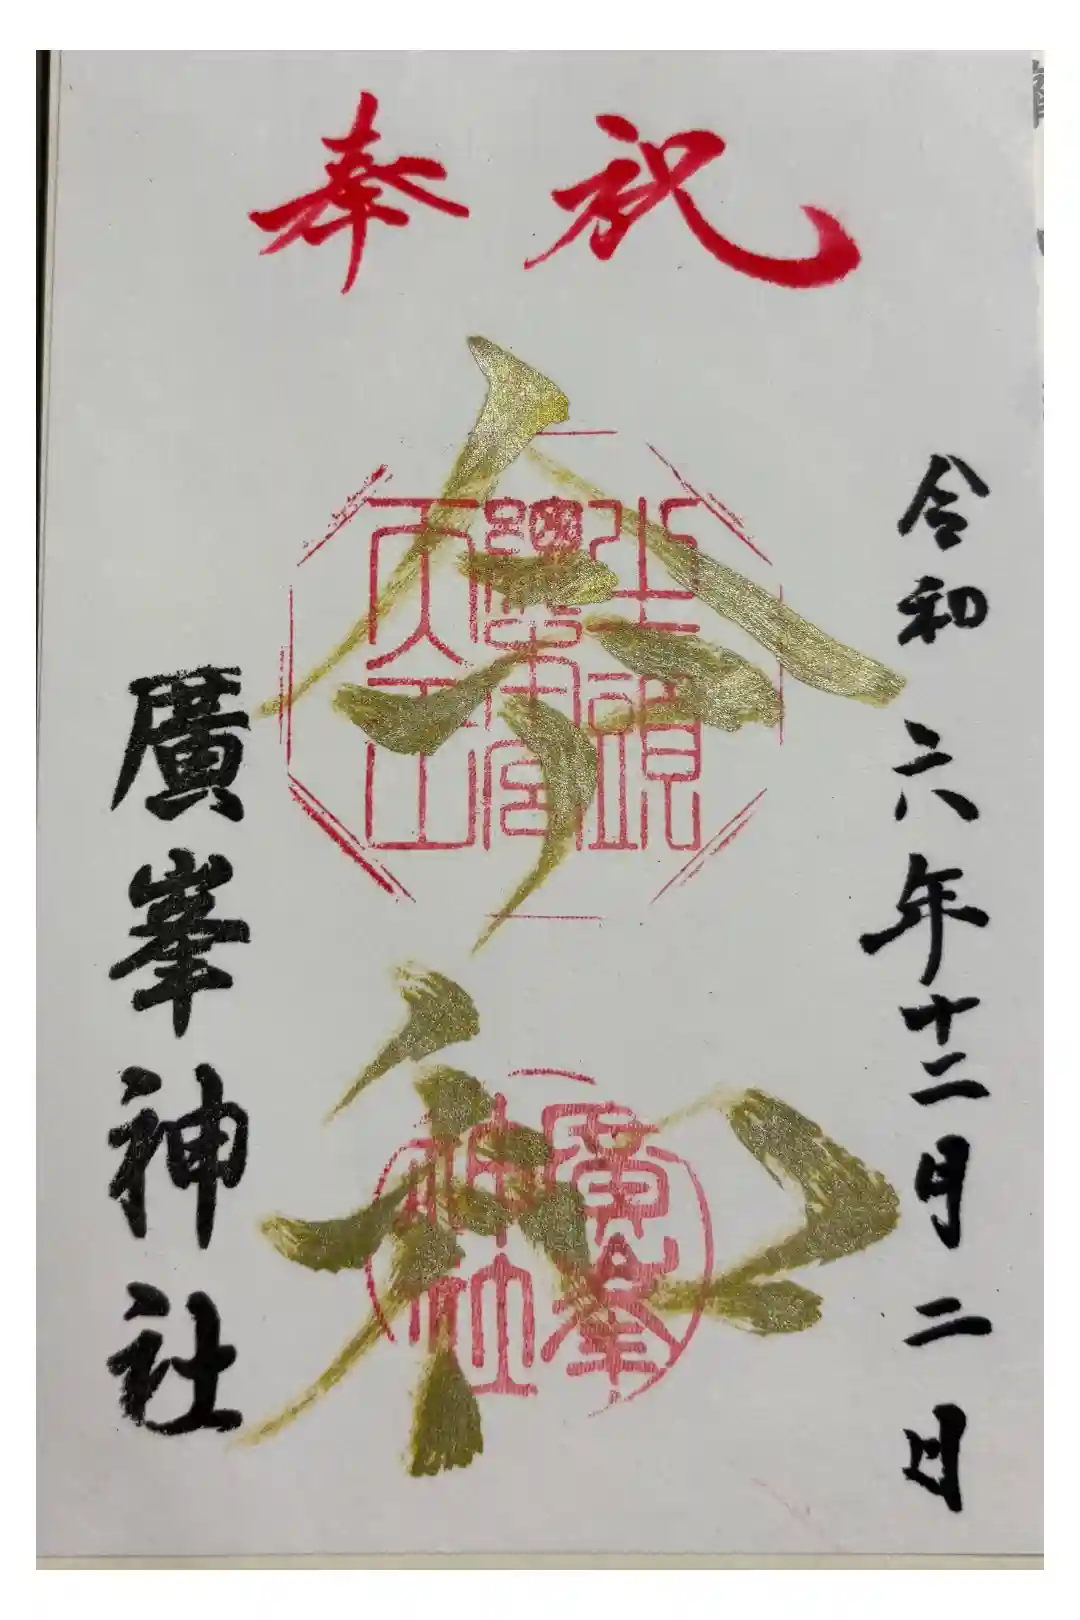 奉祝
令和六年十二月二日
令和
廣峯神社
廣峯神社